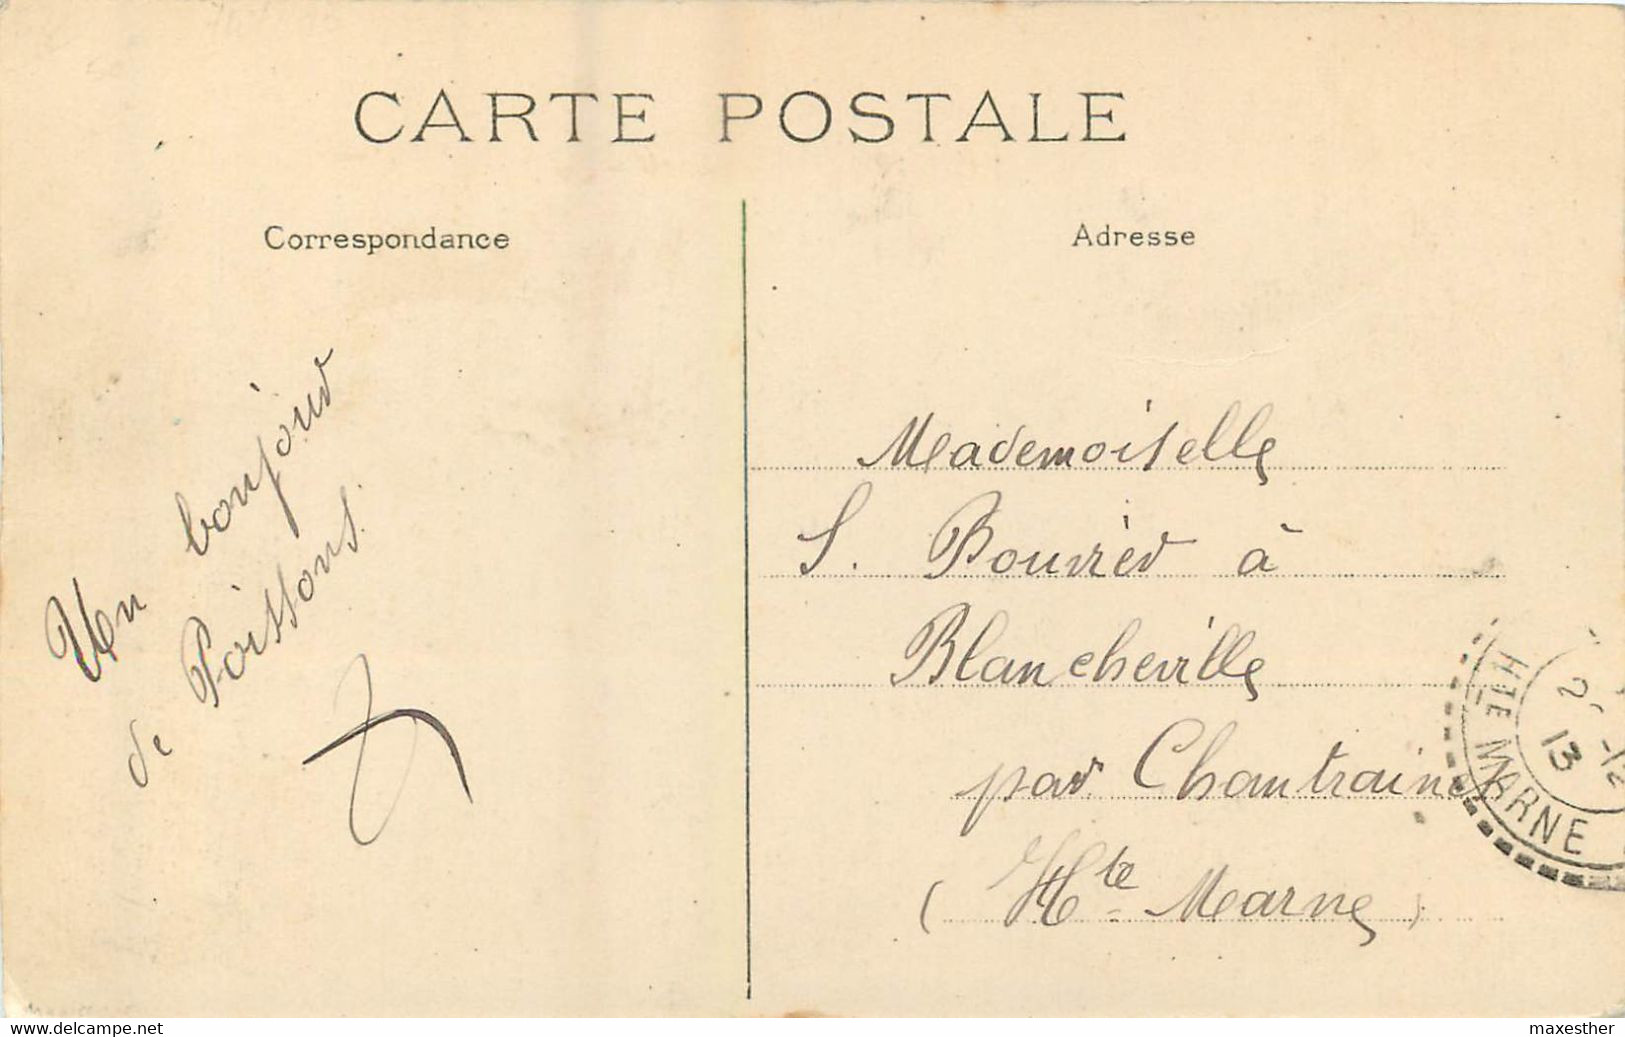 CARTE POSTALE
Correspondance
Un bonjour
de Poissons.
Adresse
Mademoiselle
S. Bouvier à
Blancheville
par Chantraines
(Hte Marne)
HTE MARNE
13
www.delcampe.net
maxesther